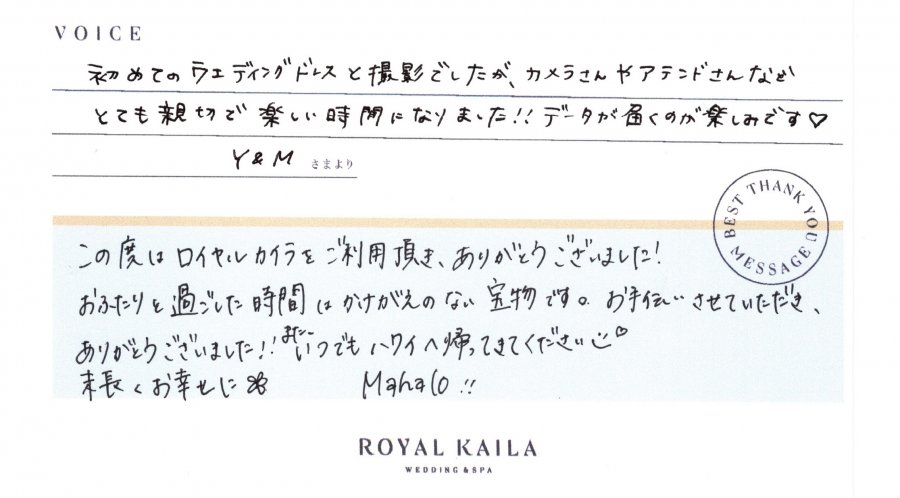 VOICE
初めてのウエディングドレスと撮影でしたが、カメラさんやアテンドさんなど
とても親切で楽しい時間になりました!! データが届くのが楽しみです♡
Y&M さまより
BEST THANK YOU MESSAGE
この度はロイヤルカイラをご利用頂き、ありがとうございました!
おふたりと過ごした時間はかけがえのない宝物です。お手伝いさせていただき、
ありがとうございました!! またいつでもハワイへ帰ってきてください♡
末長くお幸せに Mahalo!!
ROYAL KAILA
WEDDING & SPA